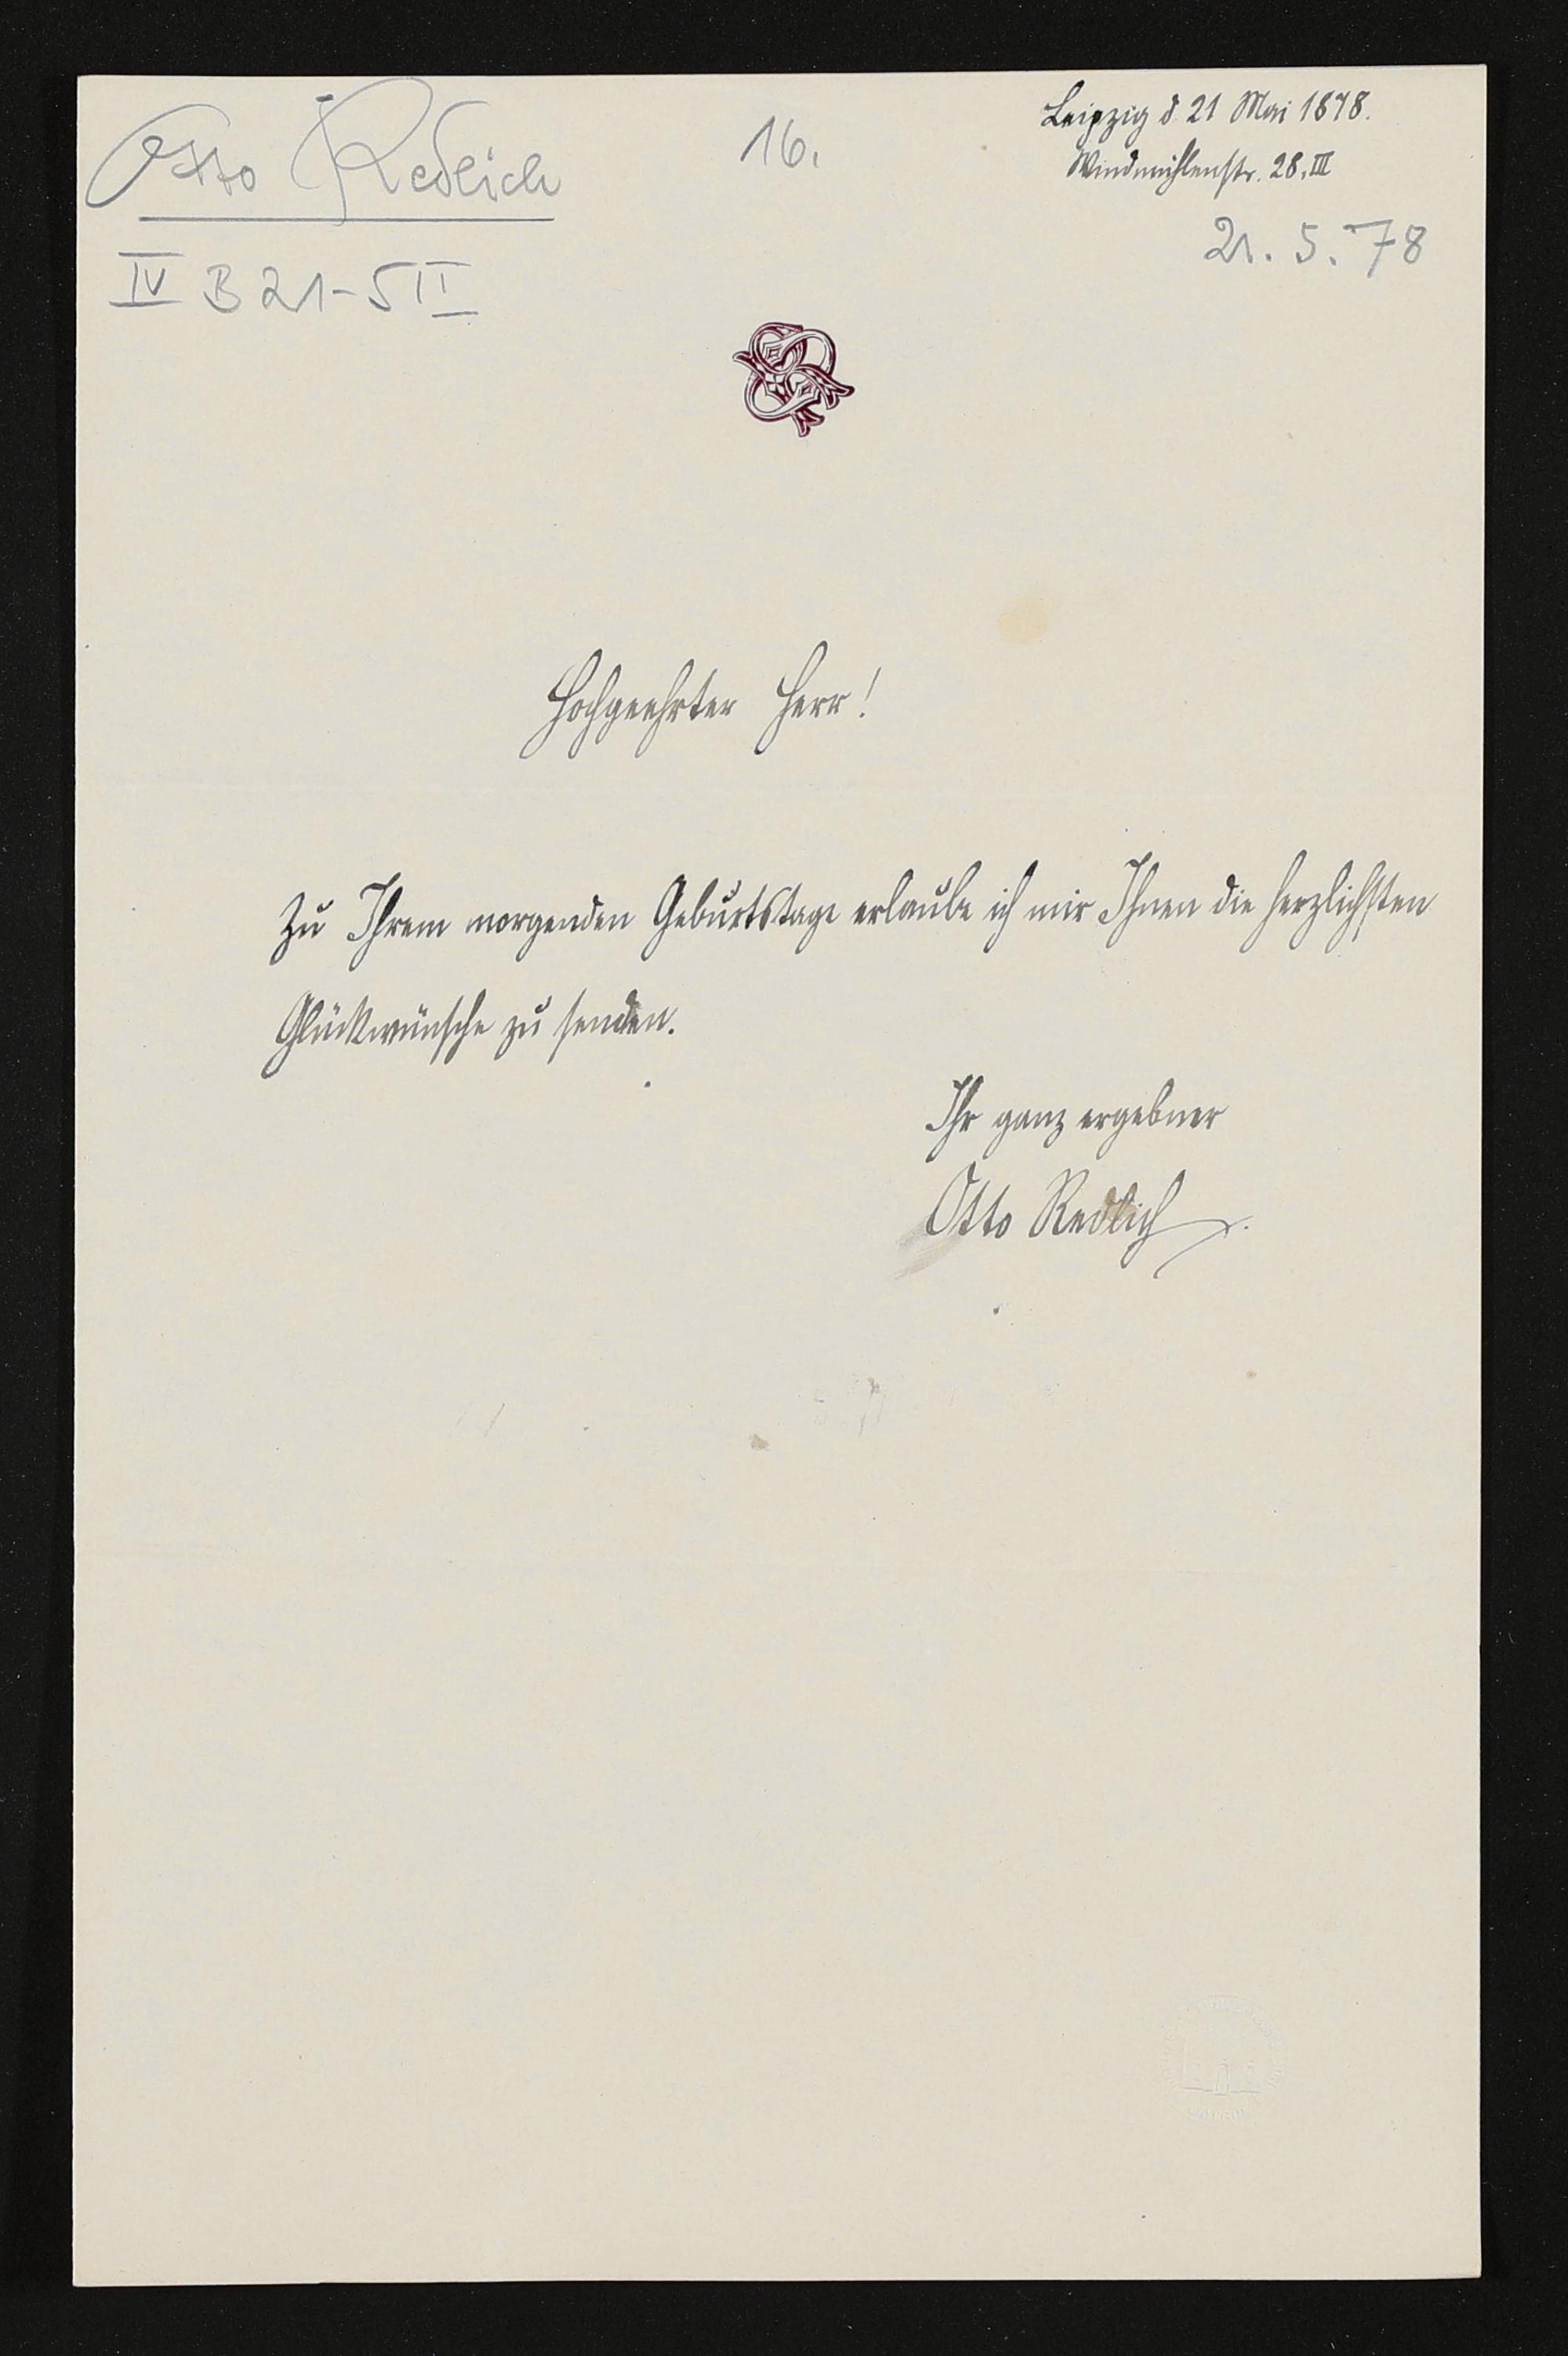 Otto Redlich
16.
Leipzig d. 21 Mai 1878.
Windmühlenstr. 28. III
IV B 21-5 II
21. 5. 78
Hochgeehrter Herr!
Zu Ihrem morgenden Geburtstage erlaube ich mir Ihnen die herzlichsten
Glückwünsche zu senden.
Ihr ganz ergebner
Otto Redlich.